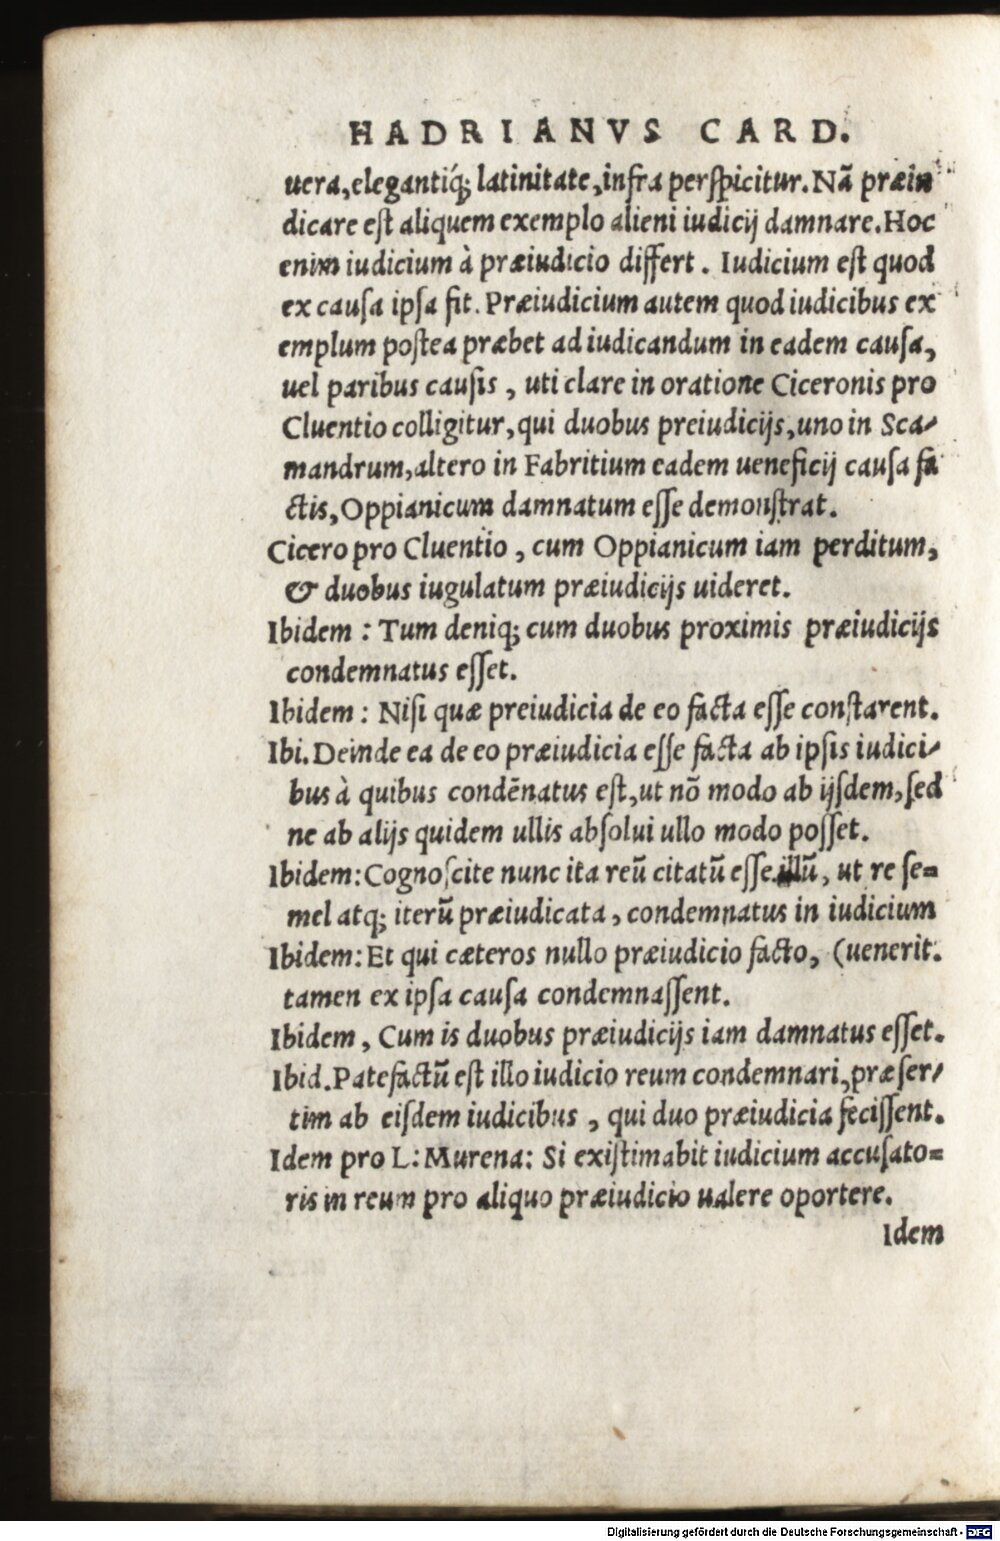 HADRIANVS CARD.
uera, elegantiq́; latinitate, infra perspicitur. Nã præiu
dicare est aliquem exemplo alieni iudicij damnare. Hoc
enim iudicium à præiudicio differt. Iudicium est quod
ex causa ipsa fit. Præiudicium autem quod iudicibus ex
emplum postea præbet ad iudicandum in eadem causa,
uel paribus causis, uti clare in oratione Ciceronis pro
Cluentio colligitur, qui duobus preiudicijs, uno in Sca-
mandrum, altero in Fabritium eadem ueneficij causa fa
ctis, Oppianicum damnatum esse demonstrat.
Cicero pro Cluentio, cum Oppianicum iam perditum,
& duobus iugulatum præiudicijs uideret.
Ibidem: Tum deniq; cum duobus proximis præiudicijs
condemnatus esset.
Ibidem: Nisi quæ preiudicia de eo facta esse constarent.
Ibi. Deinde ea de eo præiudicia esse facta ab ipsis iudici-
bus à quibus condẽnatus est, ut nõ modo ab ijsdem, sed
ne ab alijs quidem ullis absolui ullo modo posset.
Ibidem: Cognoscite nunc ita reũ citatũ esse illũ, ut re se=
mel atq; iterũ præiudicata, condemnatus in iudicium
Ibidem: Et qui cæteros nullo præiudicio facto, (uenerit.
tamen ex ipsa causa condemnassent.
Ibidem, Cum is duobus præiudicijs iam damnatus esset.
Ibid. Patefactũ est illo iudicio reum condemnari, præser-
tim ab eisdem iudicibus, qui duo præiudicia fecissent.
Idem pro L: Murena: Si existimabit iudicium accusato=
ris in reum pro aliquo præiudicio ualere oportere.
Idem
Digitalisierung gefördert durch die Deutsche Forschungsgemeinschaft - DFG